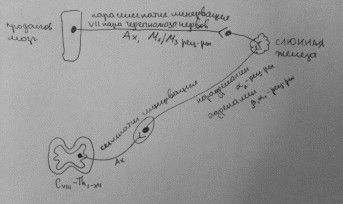 продолгов
мозг
парасимпатич иннервация
VII пара черепномозг нервов
Ах, М₁/М₃ рец-ры
слюнная
железа
симпатич иннервация
Ах
норадреналин
α₁-рец-ры
адреналин
рец-ры
CVIII-Th